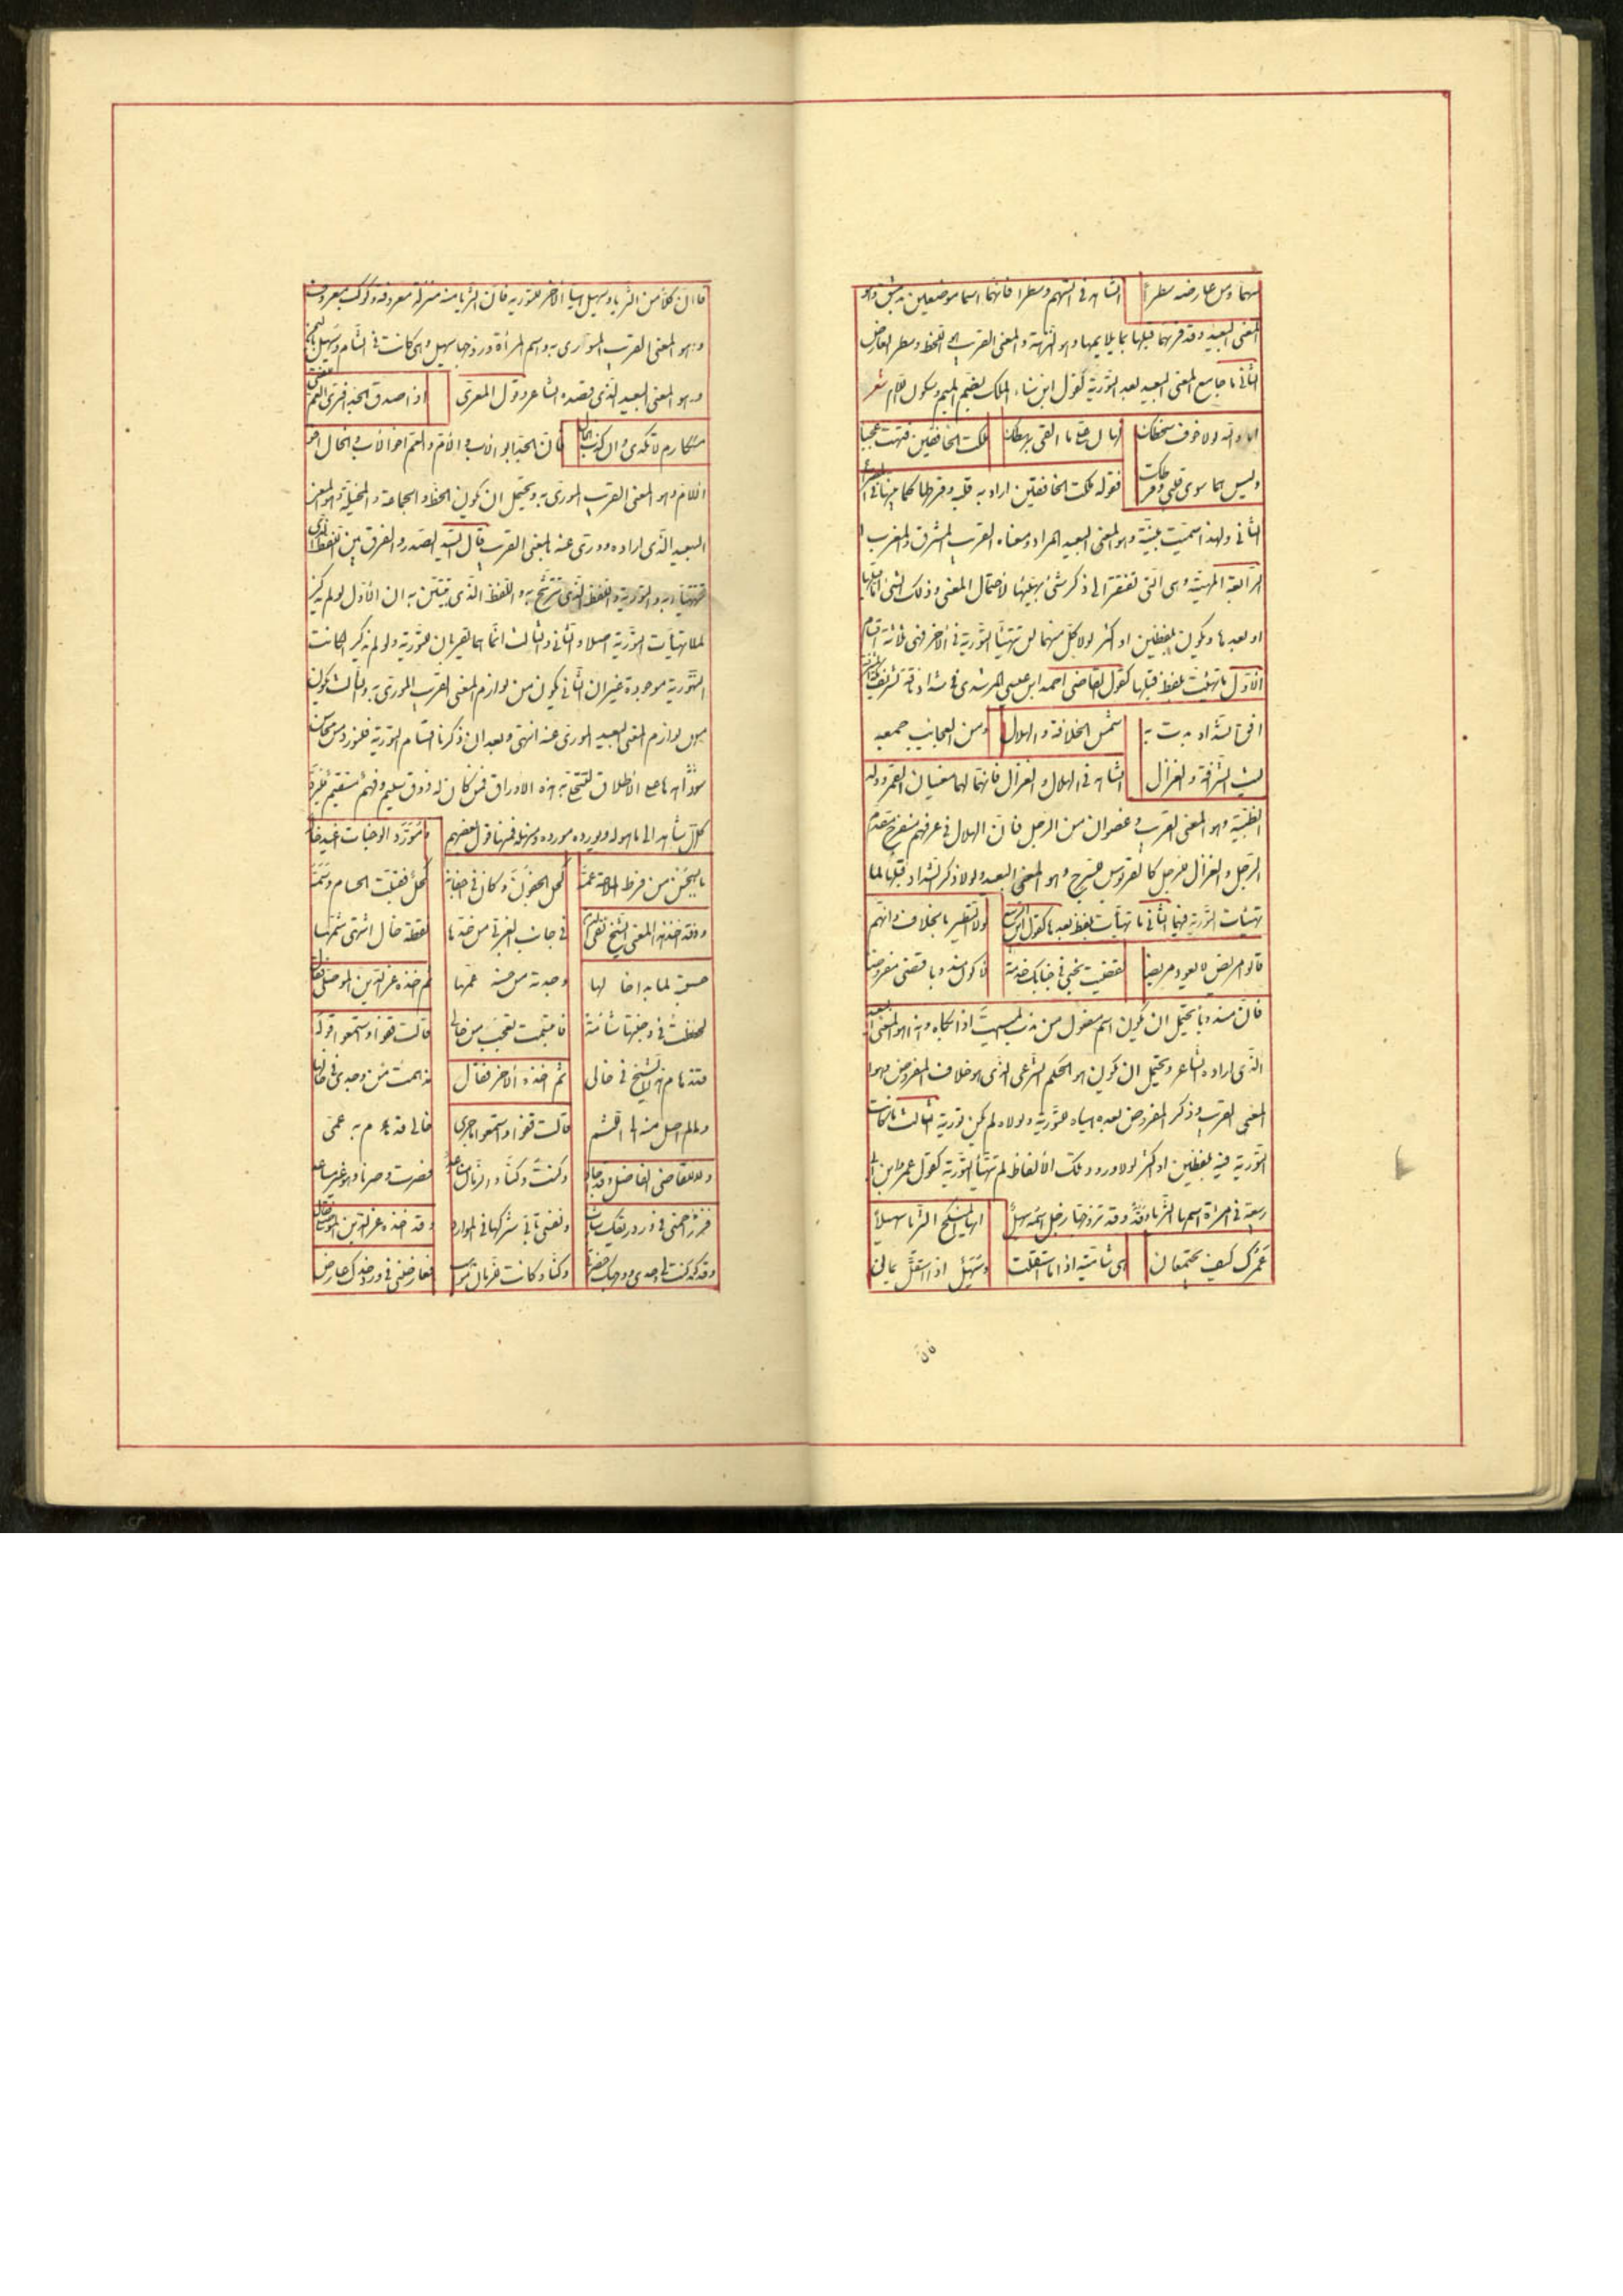 سهما ومن عارضه سطرا الشاهد فى السهم وسطرا فانهما اسما موضعين بدمشق وهو
المعنى البعيد وقد قرنهما قبلها بما يلايمها وهو النزهة والمعنى القريب سهم اللحظ وسطر العارض
الثانى ما جامع المعنى البعيد بعد التورية كقول ابن سناء الملك بضم الميم وسكون اللام شعر
اما والله لولا خوف سخطك لهان على ما القى برهطك ملكت الخافقين فتهت عجبا
وليس هما سوى قلبى وقرطك فقوله ملكت الخافقين اراد به قلبه وقرطها كما
الثانى ولهذا سميت مبينة وهو المعنى البعيد المراد ومعناه القريب المشرق والمغرب
الرابعة المهيئة وهى التى تفتقر الى ذكر شئ يهيئها لاحتمال المعنى وذلك الشئ اما قبلها
او بعدها ويكون بلفظين او اكثر لولا كل منهما لم تتهيأ التورية فى الاخر فهى ثلاثة اقسام
الاول ما تهيئت بلفظ قبلها كقول القاضى احمد ابن عيسى المرشدى فى شداد ناقة شريف مكة
افق الشداد بدت به شمس الخلافة والهلال ومن العجائب جمعه
ليث الشرافة والغزال الشاهد فى الهلال والغزال فانهما لهما معنيان القمر وولد
الظبية وهو المعنى القريب وعضوان من الرحل فان الهلال فى عرفهم منفرج مقدم
الرحل والغزال للرحل كالقربوس للسرج وهو المعنى البعيد ولولا ذكر الشداد قبلها لما
تهيئات التورية فيهما الثانى ما تهيأت بلفظ بعدها كقول ابن الربيع ولا التطير بالخلاف وانهم
قالوا مريض لا يعود مريضا لقضيت نحبى فى جنابك خدمة لاكون مندوبا قضى مفروضا
فان مندوبا يحتمل ان يكون اسم مفعول من ندب الميت اذا بكاه وهذا هو المعنى البعيد
الذى اراده الشاعر ويحتمل ان يكون هو الحكم الشرعى الذى هو خلاف المفروض وهو
المعنى القريب وذكر المفروض بعده هياه للتورية ولولاه لم يكن تورية الثالث ما كانت
التورية فيه بلفظين او اكثر لولا ورود تلك الالفاظ لم تتهيأ التورية كقول عمر ابن ابى
ربيعة فى امرأة اسمها الثريا وقد تزوجها رجل اسمه سهيل ايها المنكح الثريا سهيلا
عمرك كيف يجتمعان هى شامية اذا ما استقلت وسهيل اذا استقل يمانى
فان كلا من الثريا وسهيل هيأ الاخر للتورية فان الثريا منه منزلة معروفة وكوكب معروف
وهو المعنى القريب المورى به واسم المرأة وزوجها سهيل وهى كانت فى الشام وسهيل باليمن
وهو المعنى البعيد الذى قصده الشاعر وقول المعرى اذا صدق الجد افترى العم للفتى
مكارم لا تكدى وان كذب الخال فان الجد ابو الاب والام والعم اخو الاب والخال اخو
الام وهو المعنى القريب المورى به ويحتمل ان يكون الحظ والجماعة والمخيلة وهو المعنى
البعيد الذى اراده وورى عنه بالمعنى القريب قال السيد الصدر والفرق بين اللفظ الذى
تتهيأ به التورية واللفظ الذى ترشح به واللفظ الذى يتبين به ان الاول لو لم يذكر
لما تهيأت التورية اصلا والثانى والثالث انما هما يقويان للتورية ولو لم يذكر لكانت
التورية موجودة غير ان الثانى يكون من لوازم المعنى القريب المورى به والثالث يكون
من لوازم المعنى البعيد المورى عنه انتهى وبعد ان ذكرنا اقسام التورية فلنورد من محاسن
شواهدها على الاطلاق لتفتح به هذه الاوراق فمن كان له ذوق سليم وفهم مستقيم فليرد
كل شاهد الى ما هو له ويورده مورده ومنهله فمنها قول بعضهم ومورد الوجنات اغيد خاله
بالحسن من فرط الملاحة عمه كحل الجفون وكان فى اجفانه كحل فقلت الحسام وسمه
وقد اخذ هذا المعنى الشيخ تقى فى جانب القرط من خدها نقطة خال اشتهى شمها
حسن لما بدا خالها وجدته من حسنه عمها ثم اخذه عز الدين الموصلى فقال
لحظت فى وجنتها شامة فابتسمت تعجب من خالى قالت قفوا واستمعوا قوله
قد هام هذا الشيخ فى خالى ثم اخذه الاخر فقال
قالت قفوا واستمعوا ما جرى خالى قد هام به عمى
وللقاضى الفاضل وكنت وكنا والزمان مساعد فصرت وصرنا وهو غير مساعد
وزاحمنى فى ورد ريقك شارب ونفسى تابى شركها فى الموارد وقد اخذه عز الدين الموصلى فقال